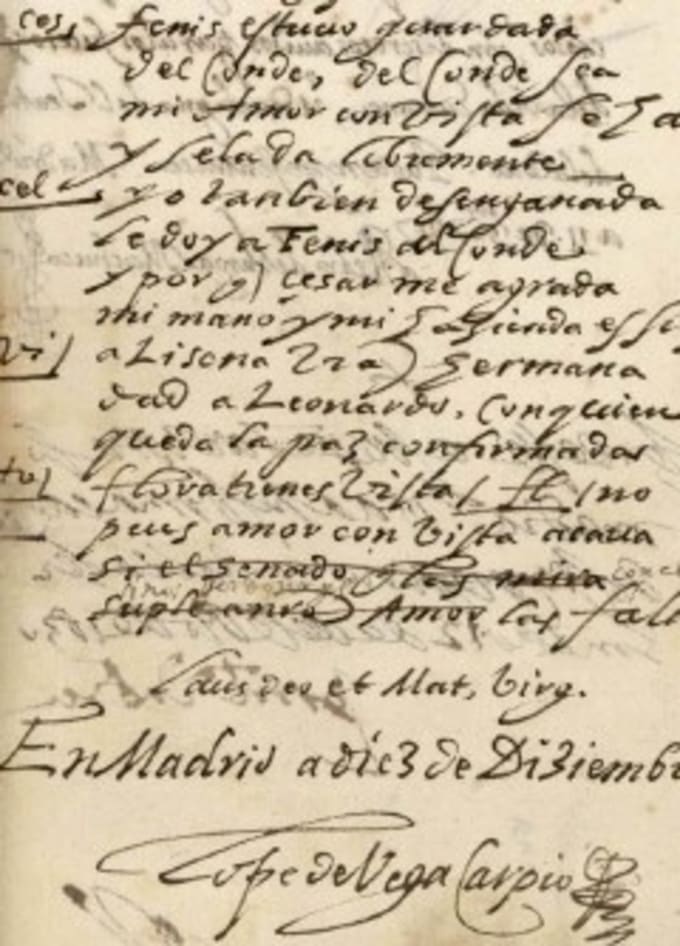 cos, fenis estuuo guardada
del Conde, del Conde sea
mi Amor con vista
y se la da libremente
cel yo tanbien desenganada
le doy a Fenis al Conde
y por q cesar me agrada
mi mano y mi hazienda
a Lisena hermana
dad a Leonardo. con quien
queda la paz confirmada
flora tienes vista / fl / no
pues amor con vista acaua
si el senado mira
suple Amor las
Laus deo et Mat, virg.
En Madrid a diez de Diziemb
Lope de Vega Carpio